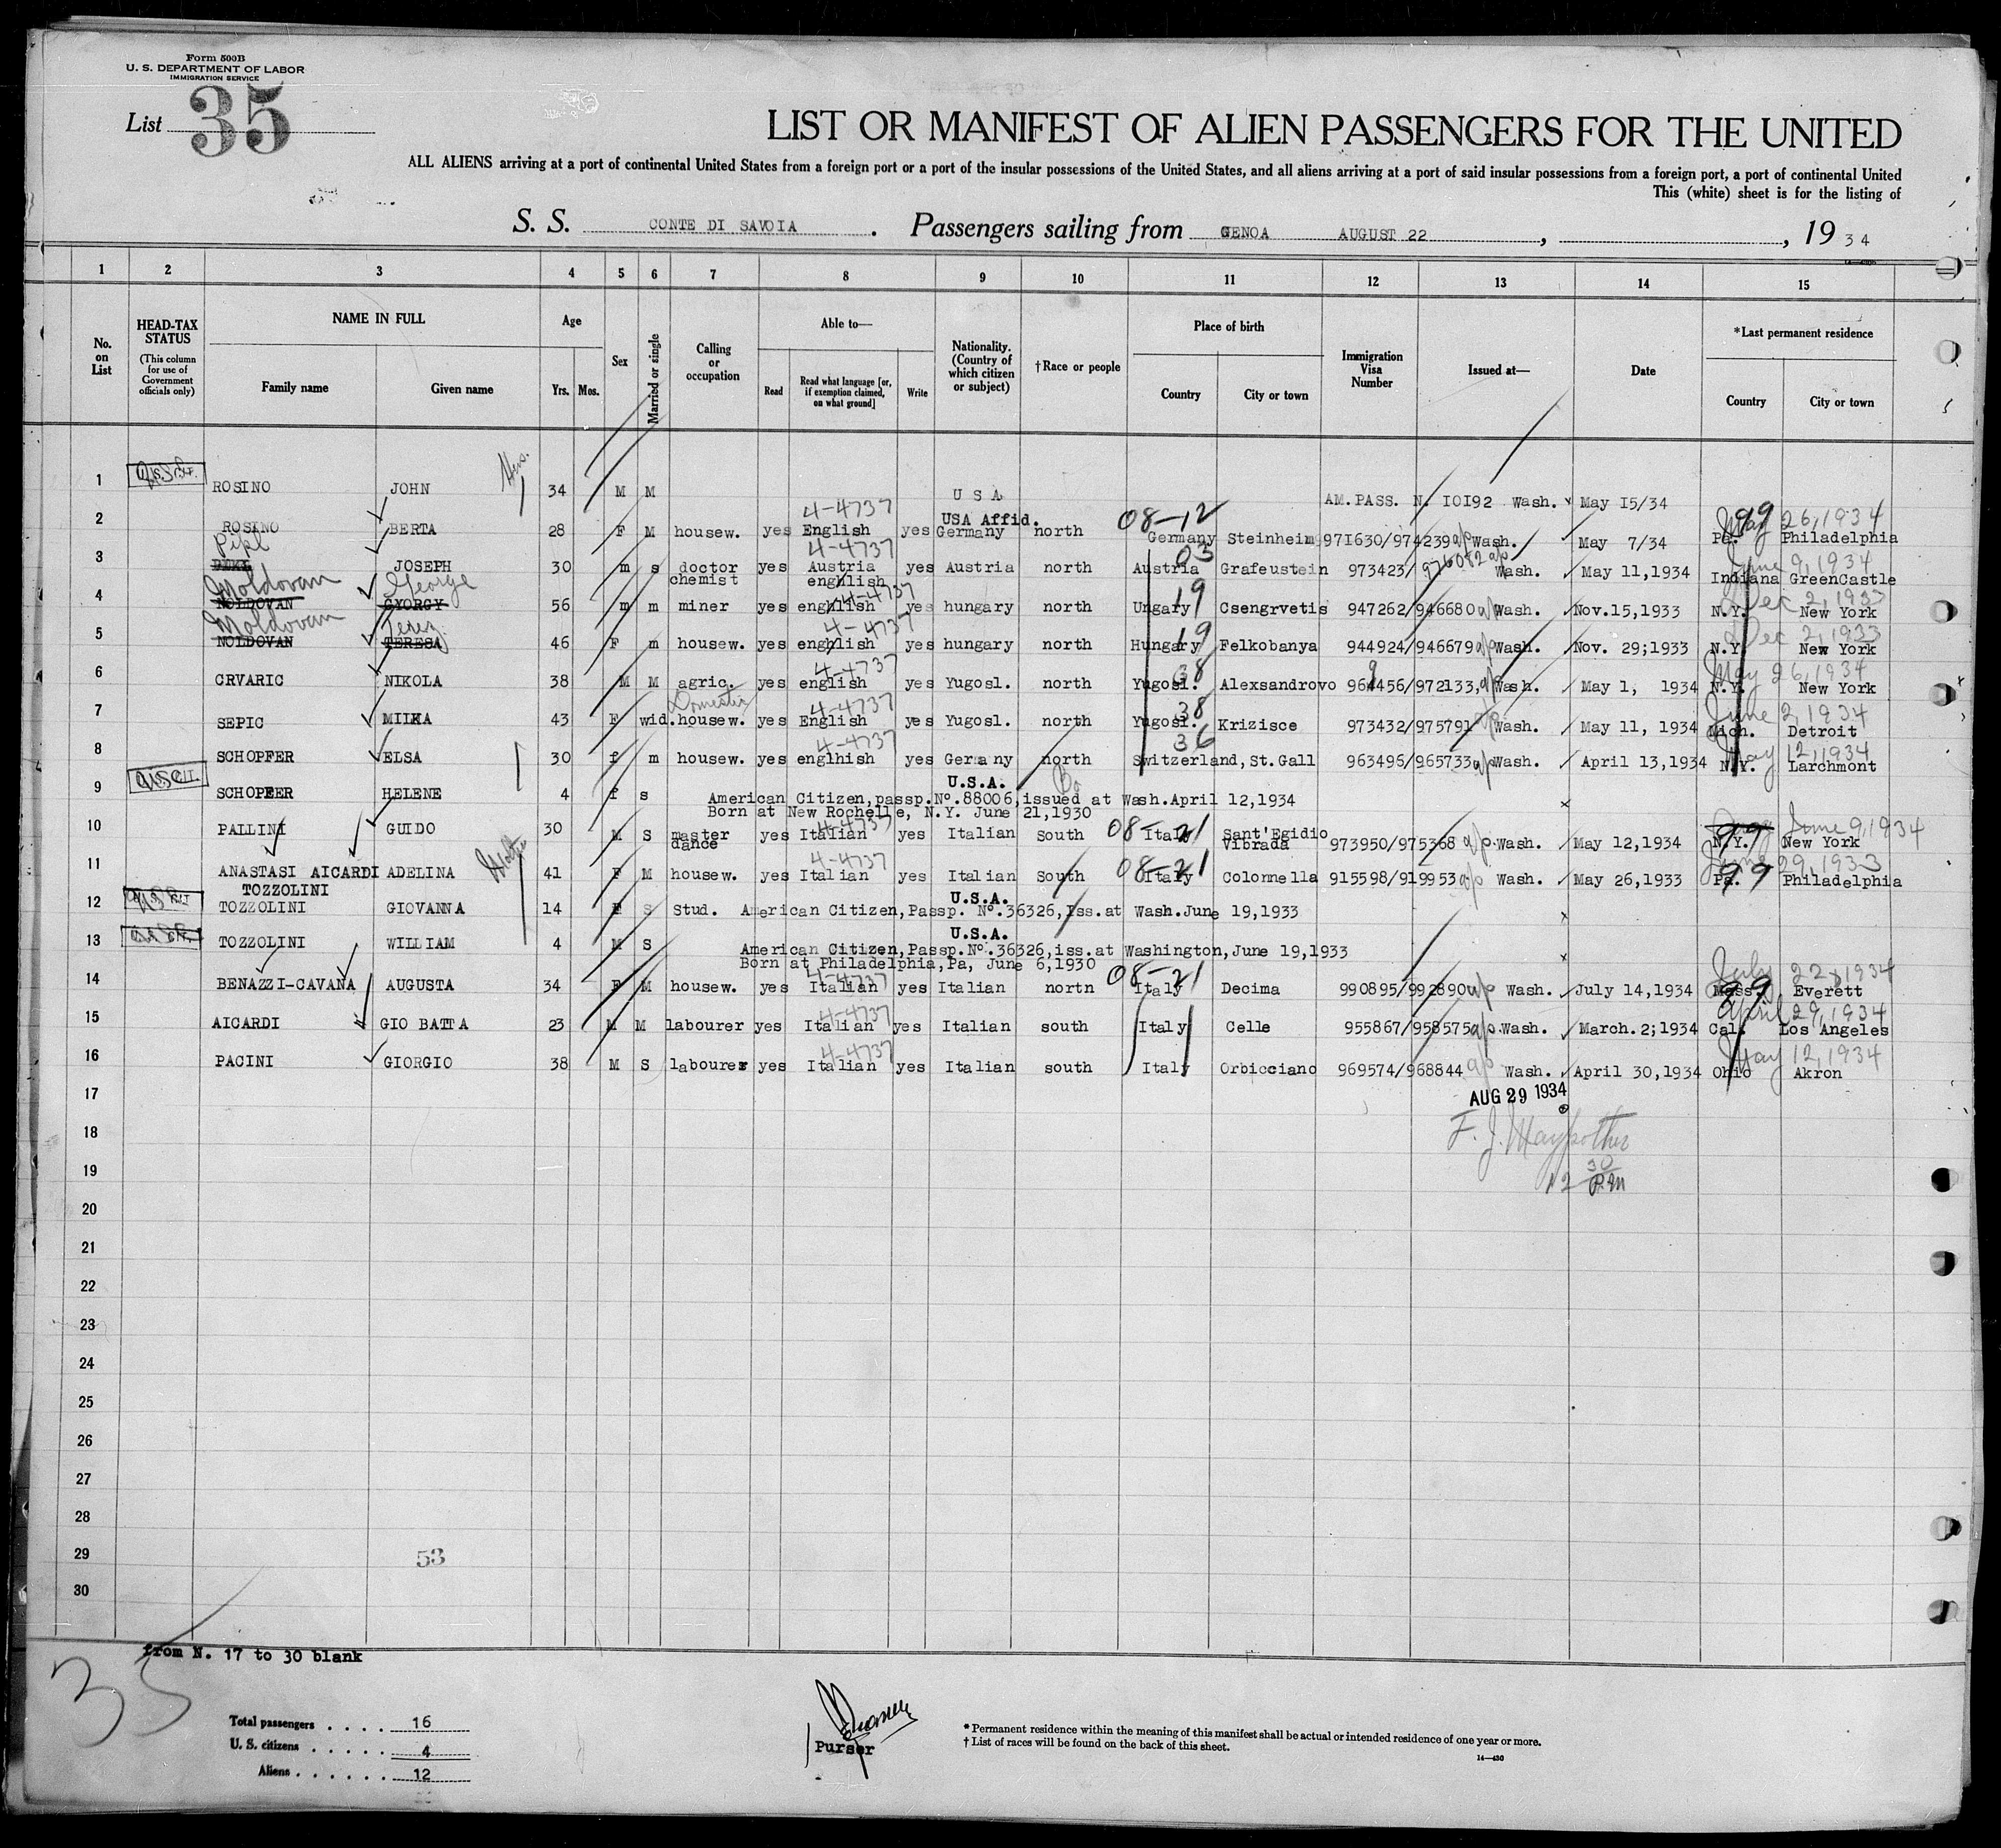 Form 500B
U. S. DEPARTMENT OF LABOR
IMMIGRATION SERVICE
List 35
LIST OR MANIFEST OF ALIEN PASSENGERS FOR THE UNITED
ALL ALIENS arriving at a port of continental United States from a foreign port or a port of the insular possessions of the United States, and all aliens arriving at a port of said insular possessions from a foreign port, a port of continental United
This (white) sheet is for the listing of
S. S. CONTE DI SAVOIA . Passengers sailing from GENOA AUGUST 22 , , 19 34
1 2 3 4 5 6 7 8 9 10 11 12 13 14 15
No. on List
HEAD-TAX STATUS (This column for use of Government officials only)
NAME IN FULL
Family name
Given name
Age
Yrs. Mos.
Sex
Married or single
Calling or occupation
Able to—
Read
Read what language [or, if exemption claimed, on what ground]
Write
Nationality. (Country of which citizen or subject)
†Race or people
Place of birth
Country
City or town
Immigration Visa Number
Issued at—
Date
*Last permanent residence
Country
City or town
1 ROSINO JOHN 34 M M U S A AM. PASS. N. 10192 Wash. May 15/34
4-4737 USA Affid. 08-12 99 May 26, 1934
2 ROSINO BERTA 28 F M housew. yes English yes Germany north Germany Steinheim 971630/974239 Wash. May 7/34 Pa. Philadelphia
Pipl 4-4737 03 976082 June 9, 1934
3 JOSEPH 30 m s doctor chemist yes Austria enghlish yes Austria north Austria Grafeustein 973423/ Wash. May 11,1934 Indiana GreenCastle
Moldovan George 4-4737 19 Dec 2, 1933
4 MOLDOVAN GYORGY 56 m m miner yes enghlish yes hungary north Ungary Csengrvetis 947262/946680 Wash. Nov.15,1933 N.Y. New York
Moldovan Terez 4-4737 19 Dec 2, 1933
5 MOLDOVAN TERESA 46 F m housew. yes enghlish yes hungary north Hungary Felkobanya 944924/946679 Wash. Nov. 29;1933 N.Y. New York
4-4737 38 9 May 26, 1934
6 CRVARIC NIKOLA 38 M M agric. yes english yes Yugosl. north Yugosl. Alexsandrovo 964456/972133, Wash. May 1, 1934 N.Y. New York
Domestic 4-4737 38 June 2, 1934
7 SEPIC MILKA 43 F wid. housew. yes English yes Yugosl. north Yugosl. Krizisce 973432/975791 Wash. May 11, 1934 Mich. Detroit
4-4737 36 May 12, 1934
8 SCHOPFER ELSA 30 f m housew. yes englhish yes Gerany north Switzerland, St.Gall 963496/965733 Wash. April 13,1934 N.Y. Larchmont
U.S.A.
9 SCHOPFER HELENE 4 f s American Citizen,passp.No.88006,issued at Wash.April 12,1934
Born at New Rochelle, N.Y. June 21,1930
4-4737 08-21 99 June 9, 1934
10 PALLINI GUIDO 30 M S master dance yes Italian yes Italian south Italy Sant'Egidio Vibrada 973950/975368 Wash. May 12,1934 N.Y. New York
4-4737 08-21 99 June 29, 1933
11 ANASTASI AICARDI TOZZOLINI ADELINA 41 F M housew. yes Italian yes Italian South Italy Colonnella 915598/919953 Wash. May 26,1933 Pa. Philadelphia
U.S.A.
12 TOZZOLINI GIOVANNA 14 F S Stud. American Citizen,Passp. No.36326,Iss.at Wash.June 19,1933
U.S.A.
13 TOZZOLINI WILLIAM 4 M S American Citizen,Passp.No.36326,iss.at Washington,June 19,1933
Born at Philadelphia,Pa, June 6,1930
4-4737 08-21 99 July 22, 1934
14 BENAZZI-CAVANA AUGUSTA 34 F M housew. yes Italian yes Italian nortn Italy Decima 990895/992890 Wash. July 14,1934 Mass. Everett
4-4737 April 29, 1934
15 AICARDI GIO BATTA 23 M M labourer yes Italian yes Italian south Italy Celle 955867/958575 Wash. March.2;1934 Cal. Los Angeles
4-4737 May 12, 1934
16 PACINI GIORGIO 38 M S labourer yes Italian yes Italian south Italy Orbicciano 969574/968844 Wash. April 30,1934 Ohio Akron
17 AUG 29 1934
18
19 12 30 P.M
20
21
22
23
24
25
26
27
28
29 53
30
from N. 17 to 30 blank
35
Total passengers . . . . 16
U. S. citizens . . . . . 4
Aliens . . . . . . 12
Purser
* Permanent residence within the meaning of this manifest shall be actual or intended residence of one year or more.
† List of races will be found on the back of this sheet.
14—430